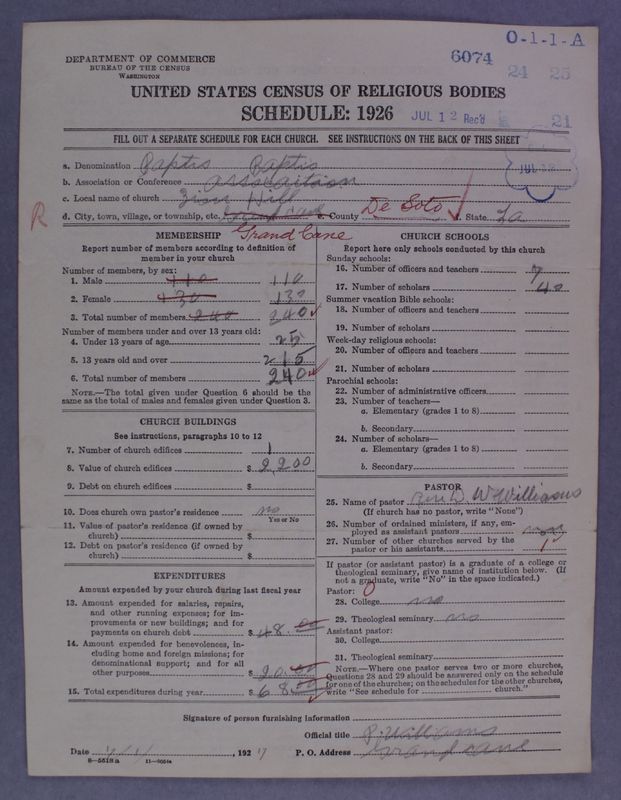 O-1-1-A
6074
24 25
DEPARTMENT OF COMMERCE
BUREAU OF THE CENSUS
WASHINGTON
UNITED STATES CENSUS OF RELIGIOUS BODIES
SCHEDULE: 1926
JUL 12 Rec'd
21
FILL OUT A SEPARATE SCHEDULE FOR EACH CHURCH. SEE INSTRUCTIONS ON THE BACK OF THIS SHEET
a. Denomination Baptis Baptis
b. Association or Conference
JUL
c. Local name of church Zion Hill
d. City, town, village, or township, etc. e. County De Soto State La
R
Grand Cane
MEMBERSHIP
Report number of members according to definition of
member in your church
Number of members, by sex:
1. Male 110 110
2. Female 130 130
3. Total number of members 240 240
Number of members under and over 13 years old:
4. Under 13 years of age 25
5. 13 years old and over 215
6. Total number of members 240
NOTE.—The total given under Question 6 should be the
same as the total of males and females given under Question 3.
CHURCH BUILDINGS
See instructions, paragraphs 10 to 12
7. Number of church edifices 1
8. Value of church edifices $ 2,200
9. Debt on church edifices $
10. Does church own pastor's residence no
Yes or No
11. Value of pastor's residence (if owned by
church) $
12. Debt on pastor's residence (if owned by
church) $
EXPENDITURES
Amount expended by your church during last fiscal year
13. Amount expended for salaries, repairs,
and other running expenses; for im-
provements or new buildings; and for
payments on church debt $ 48.00
14. Amount expended for benevolences, in-
cluding home and foreign missions; for
denominational support; and for all
other purposes $ 20.00
15. Total expenditures during year $ 68.00
CHURCH SCHOOLS
Report here only schools conducted by this church
Sunday schools:
16. Number of officers and teachers 7
17. Number of scholars 40
Summer vacation Bible schools:
18. Number of officers and teachers
19. Number of scholars
Week-day religious schools:
20. Number of officers and teachers
21. Number of scholars
Parochial schools:
22. Number of administrative officers
23. Number of teachers—
a. Elementary (grades 1 to 8)
b. Secondary
24. Number of scholars—
a. Elementary (grades 1 to 8)
b. Secondary
PASTOR
25. Name of pastor Williams
(If church has no pastor, write "None")
26. Number of ordained ministers, if any, em-
ployed as assistant pastors
27. Number of other churches served by the
pastor or his assistants 1
If pastor (or assistant pastor) is a graduate of a college or
theological seminary, give name of institution below. (If
not a graduate, write "No" in the space indicated.)
Pastor: 0
28. College no
29. Theological seminary no
Assistant pastor:
30. College
31. Theological seminary
NOTE.—Where one pastor serves two or more churches,
Questions 28 and 29 should be answered only on the schedule
for one of the churches; on the schedules for the other churches,
write "See schedule for church."
Signature of person furnishing information
Official title P. Williams
Date , 1927 P. O. Address Grand Cane